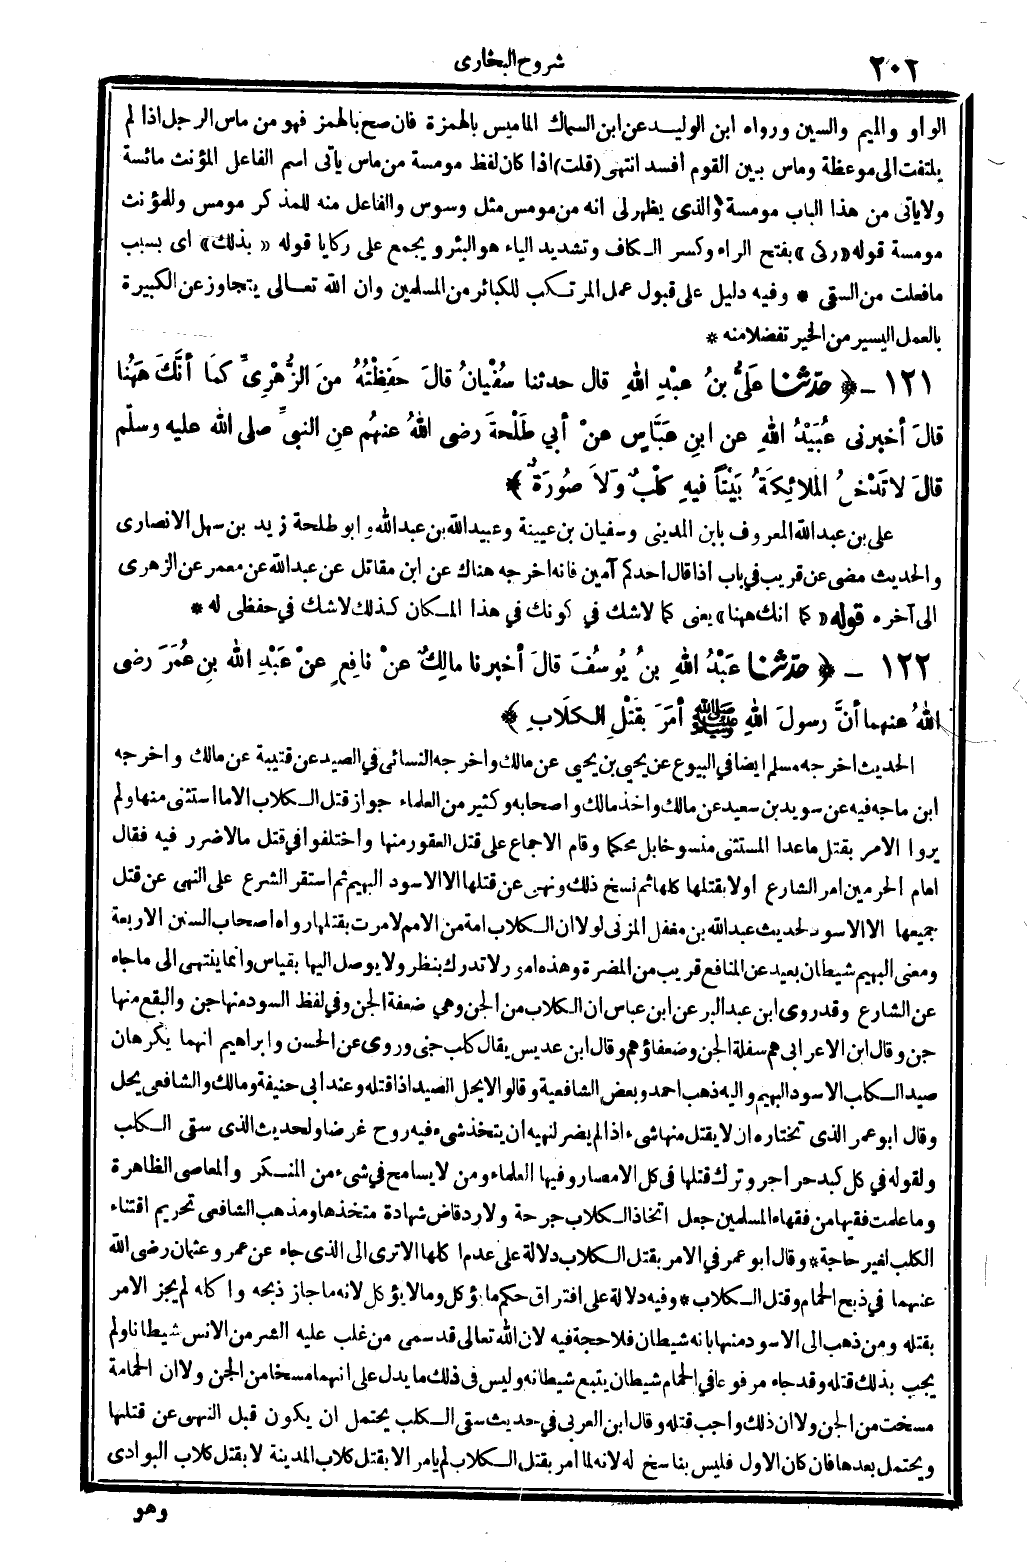 ٢٠٢
شروح البخارى
الواو والميم والسين ورواه ابن الوليد عن ابن السماك الماميس بالهمزة فان صح بالهمز فهو من ماس الرجل اذا لم
يلتفت الى موعظة وماس بين القوم أفسد انتهى (قلت) اذا كان لفظ مومسة من ماس يأتى اسم الفاعل المؤنث مائسة
ولا ياتى من هذا الباب مومسة والذى يظهر لى انه من مومس مثل وسوس والفاعل منه للمذكر مومس وللمؤنث
مومسة قوله «ركى» بفتح الراء وكسر الكاف وتشديد الياء هو البئر ويجمع على ركايا قوله « بذلك» اى بسبب
مافعلت من السقى * وفيه دليل على قبول عمل المرتكب للكبائر من المسلمين وان الله تعالى يتجاوز عن الكبيرة
بالعمل اليسير من الخير تفضلا منه *
١٢١ - ﴿ حَدَّثَنَا عَلِيُّ بنُ عبْدِ اللهِ قال حدثنا سُفْيانُ قالَ حَفِظْتُهُ مِنَ الزُّهْرِىِّ كمَا أنَّكَ هَهُنا
قالَ أخبرنى عُبَيْدُ اللهِ عن ابنِ عَبَّاسٍ عنْ أبي طَلْحةَ رضى اللهُ عنهُم عنِ النبىِّ صلى الله عليه وسلّم
قالَ لاتَدْخلُ المَلائِكَةُ بَيْتاً فيهِ كلْبٌ ولاَ صُورَةٌ ﴾ *
على بن عبدالله المعروف بابن المدينى وسفيان بن عيينة وعبيدالله بن عبدالله وابو طلحة زيد بن سهل الانصارى
والحديث مضى عن قريب في باب اذا قال احدكم آمين فانه اخرجه هناك عن ابن مقاتل عن عبدالله عن معمر عن الزهرى
الى آخره قوله « كما انك ههنا» يعنى كما لاشك في كونك في هذا المكان كذلك لاشك في حفظى له *
١٢٢ - ﴿ حَدَّثَنَا عَبْدُ اللهِ بنُ يُوسُفَ قالَ أخبرنا مالِكٌ عنْ نافِعٍ عنْ عَبْدِ اللهِ بنِ عُمَرَ رضى
اللهُ عنهما أنَّ رسولَ اللهِ ﷺ أمَرَ بقَتْلِ الكلَابِ ﴾ *
الحديث اخرجه مسلم ايضا في البيوع عن يحيى بن يحيى عن مالك واخرجه النسائى في الصيد عن قتيبة عن مالك واخرجه
ابن ماجه فيه عن سويد بن سعيد عن مالك واخذ مالك واصحابه وكثير من العلماء جواز قتل الكلاب الا ما استثنى منها ولم
يروا الامر بقتل ما عدا المستثنى منسوخا بل محكما وقام الاجماع على قتل العقور منها واختلفوا في قتل مالا ضرر فيه فقال
امام الحرمين امر الشارع اولا بقتلها كلها ثم نسخ ذلك ونهى عن قتلها الا الاسود البهيم ثم استقر الشرع على النهى عن قتل
جميعها الا الاسود لحديث عبدالله بن مغفل المزنى لولا ان الكلاب امة من الامم لامرت بقتلها رواه اصحاب السنن الاربعة
ومعنى البهيم شيطان بعيد عن المنافع قريب من المضرة وهذه امور لا تدرك بنظر ولا يوصل اليها بقياس وانما ينتهى الى ماجاء
عن الشارع وقد روى ابن عبد البر عن ابن عباس ان الكلاب من الجن وهي ضعفة الجن وفي لفظ السود منها جن والبقع منها
جن وقال ابن الاعرابى هم سفلة الجن وضعفاؤهم وقال ابن عديس يقال كلب جنى وروى عن الحسن وابراهيم انهما يكرهان
صيد الكلب الاسود البهيم واليه ذهب احمد وبعض الشافعية وقالوا لا يحل الصيد اذا قتله وعند ابى حنيفة ومالك والشافعى يحل
وقال ابو عمر الذى تختاره ان لا يقتل منها شىء اذا لم يضر لنهيه ان يتخذ شىء فيه روح غرضا ولحديث الذى سقى الكلب
ولقوله في كل كبد حر اجر وترك قتلها فى كل الامصار وفيها العلماء ومن لا يسامح في شىء من المنكر والمعاصى الظاهرة
وما علمت فقيها من فقهاء المسلمين جعل اتخاذ الكلاب جرحة ولا رد قاض شهادة متخذها ومذهب الشافعى تحريم اقتناء
الكلب لغير حاجة * وقال ابو عمر في الامر بقتل الكلاب دلالة على عدم اكلها الا ترى الى الذى جاء عن عمر وعثمان رضى الله
عنهما في ذبح الحمام وقتل الكلاب * وفيه دلالة على افتراق حكم ما يؤكل وما لا يؤكل لانه ما جاز ذبحه واكله لم يجز الامر
بقتله ومن ذهب الى الاسود منها بانه شيطان فلا حجة فيه لان الله تعالى قد سمى من غلب عليه الشر من الانس شيطانا ولم
يجب بذلك قتله وقد جاء مرفوعا في الحمام شيطان يتبع شيطانه وليس فى ذلك ما يدل على انهما مسخا من الجن ولا ان الحمامة
مسخت من الجن ولا ان ذلك واجب قتله وقال ابن العربى في حديث سقى الكلب يحتمل ان يكون قبل النهى عن قتلها
ويحتمل بعدها فان كان الاول فليس بناسخ له لانه لما امر بقتل الكلاب لم يامر الا بقتل كلاب المدينة لا بقتل كلاب البوادى
وهو